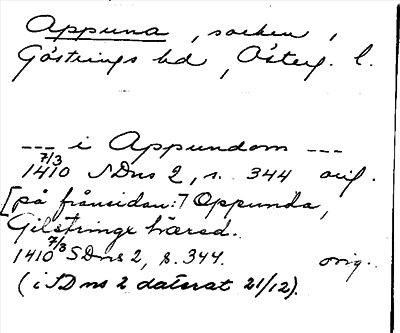 Appuna, socken,
Göstrings hd, Österg. l.
--- i Appundom ---
1410 7/3 SDns 2, s. 344 orig.
[på frånsidan:] Oppunda,
Gilstringe hærad.
1410 7/3 SDns 2, s. 344. orig.
(i SDns 2 daterat 21/12).